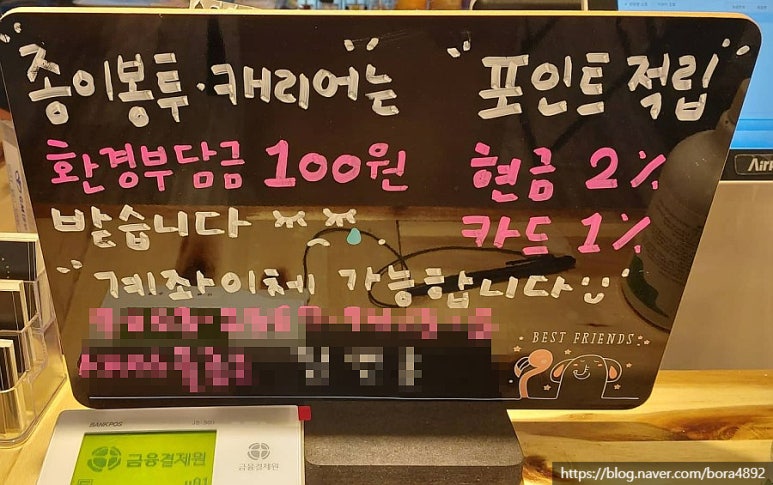 종이봉투·캐리어는
환경부담금 100원
받습니다 ㅠㅠ
"포인트 적립"
현금 2%
카드 1%
"계좌이체 가능합니다"
BEST FRIENDS
BANKPOS
금융결제원
금융결제원
https://blog.naver.com/bora4892